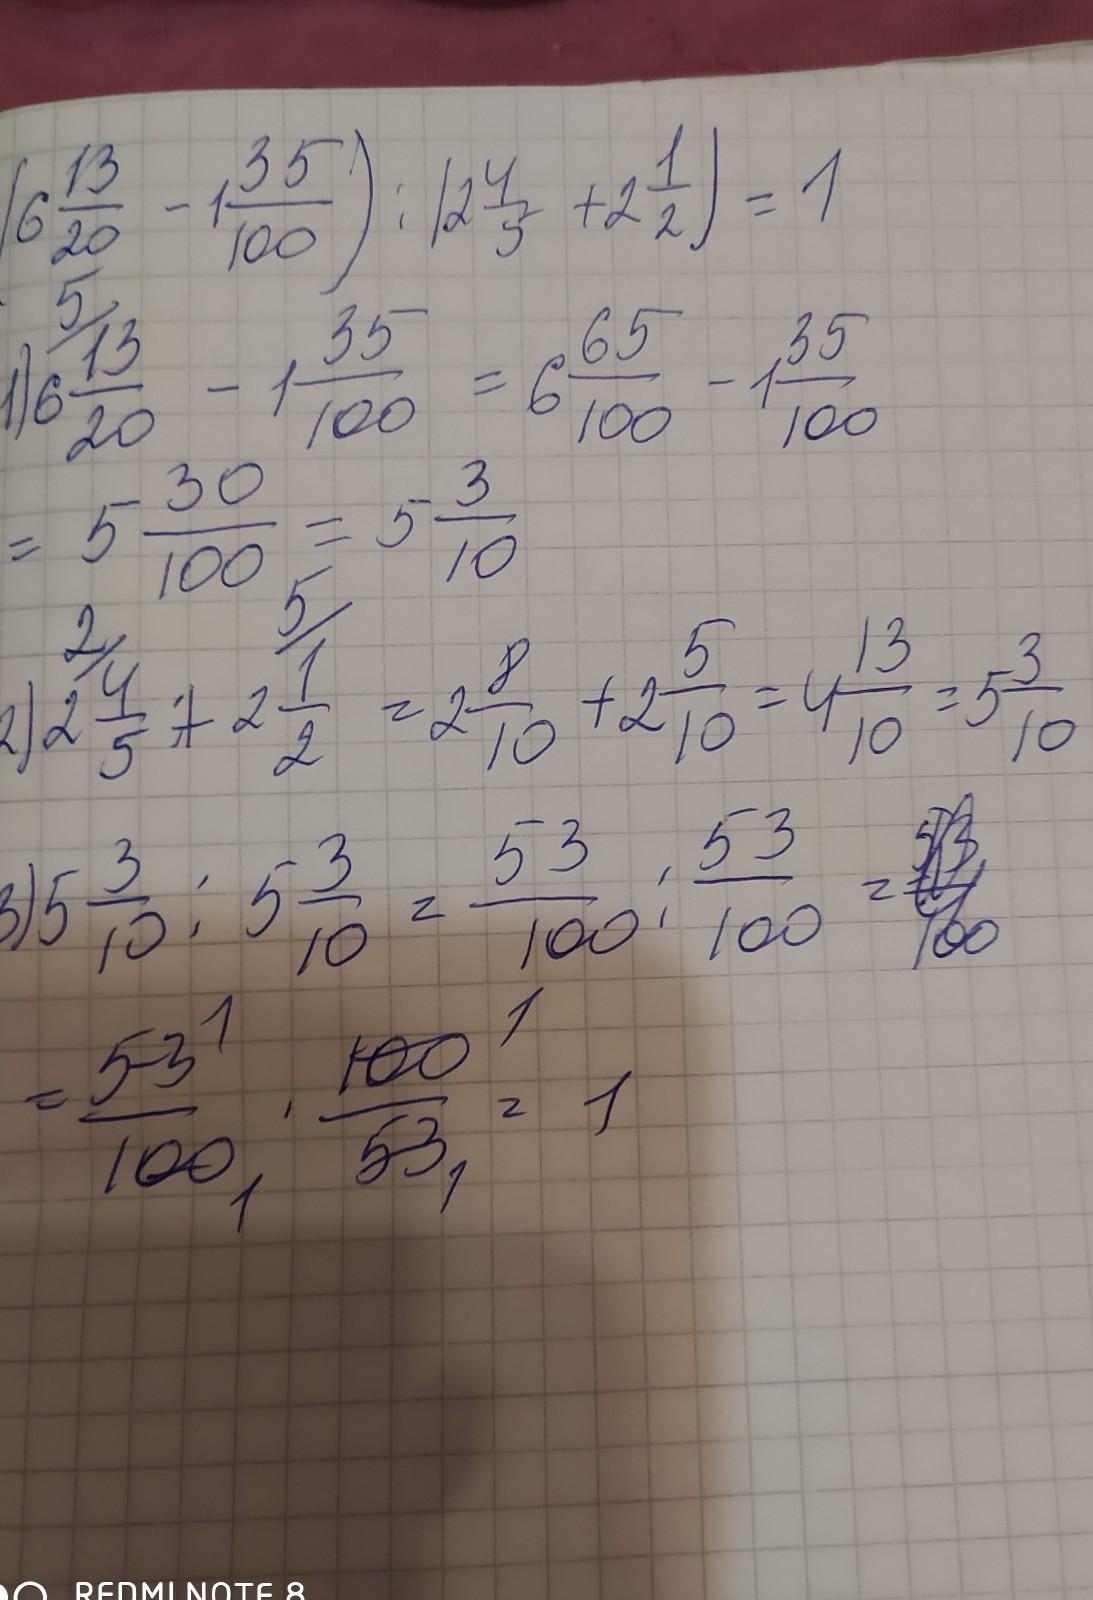 (6 13/20 - 1 35/100) : (2 4/5 + 2 1/2) = 1
1) 6 13/20 5/ - 1 35/100 = 6 65/100 - 1 35/100
= 5 30/100 = 5 3/10
2) 2 4/5 2/ + 2 1/2 5/ = 2 8/10 + 2 5/10 = 4 13/10 = 5 3/10
3) 5 3/10 : 5 3/10 = 53/100 : 53/100 =
= 53 1/100 1 · 100 1/53 1 = 1
REDMI NOTE 8